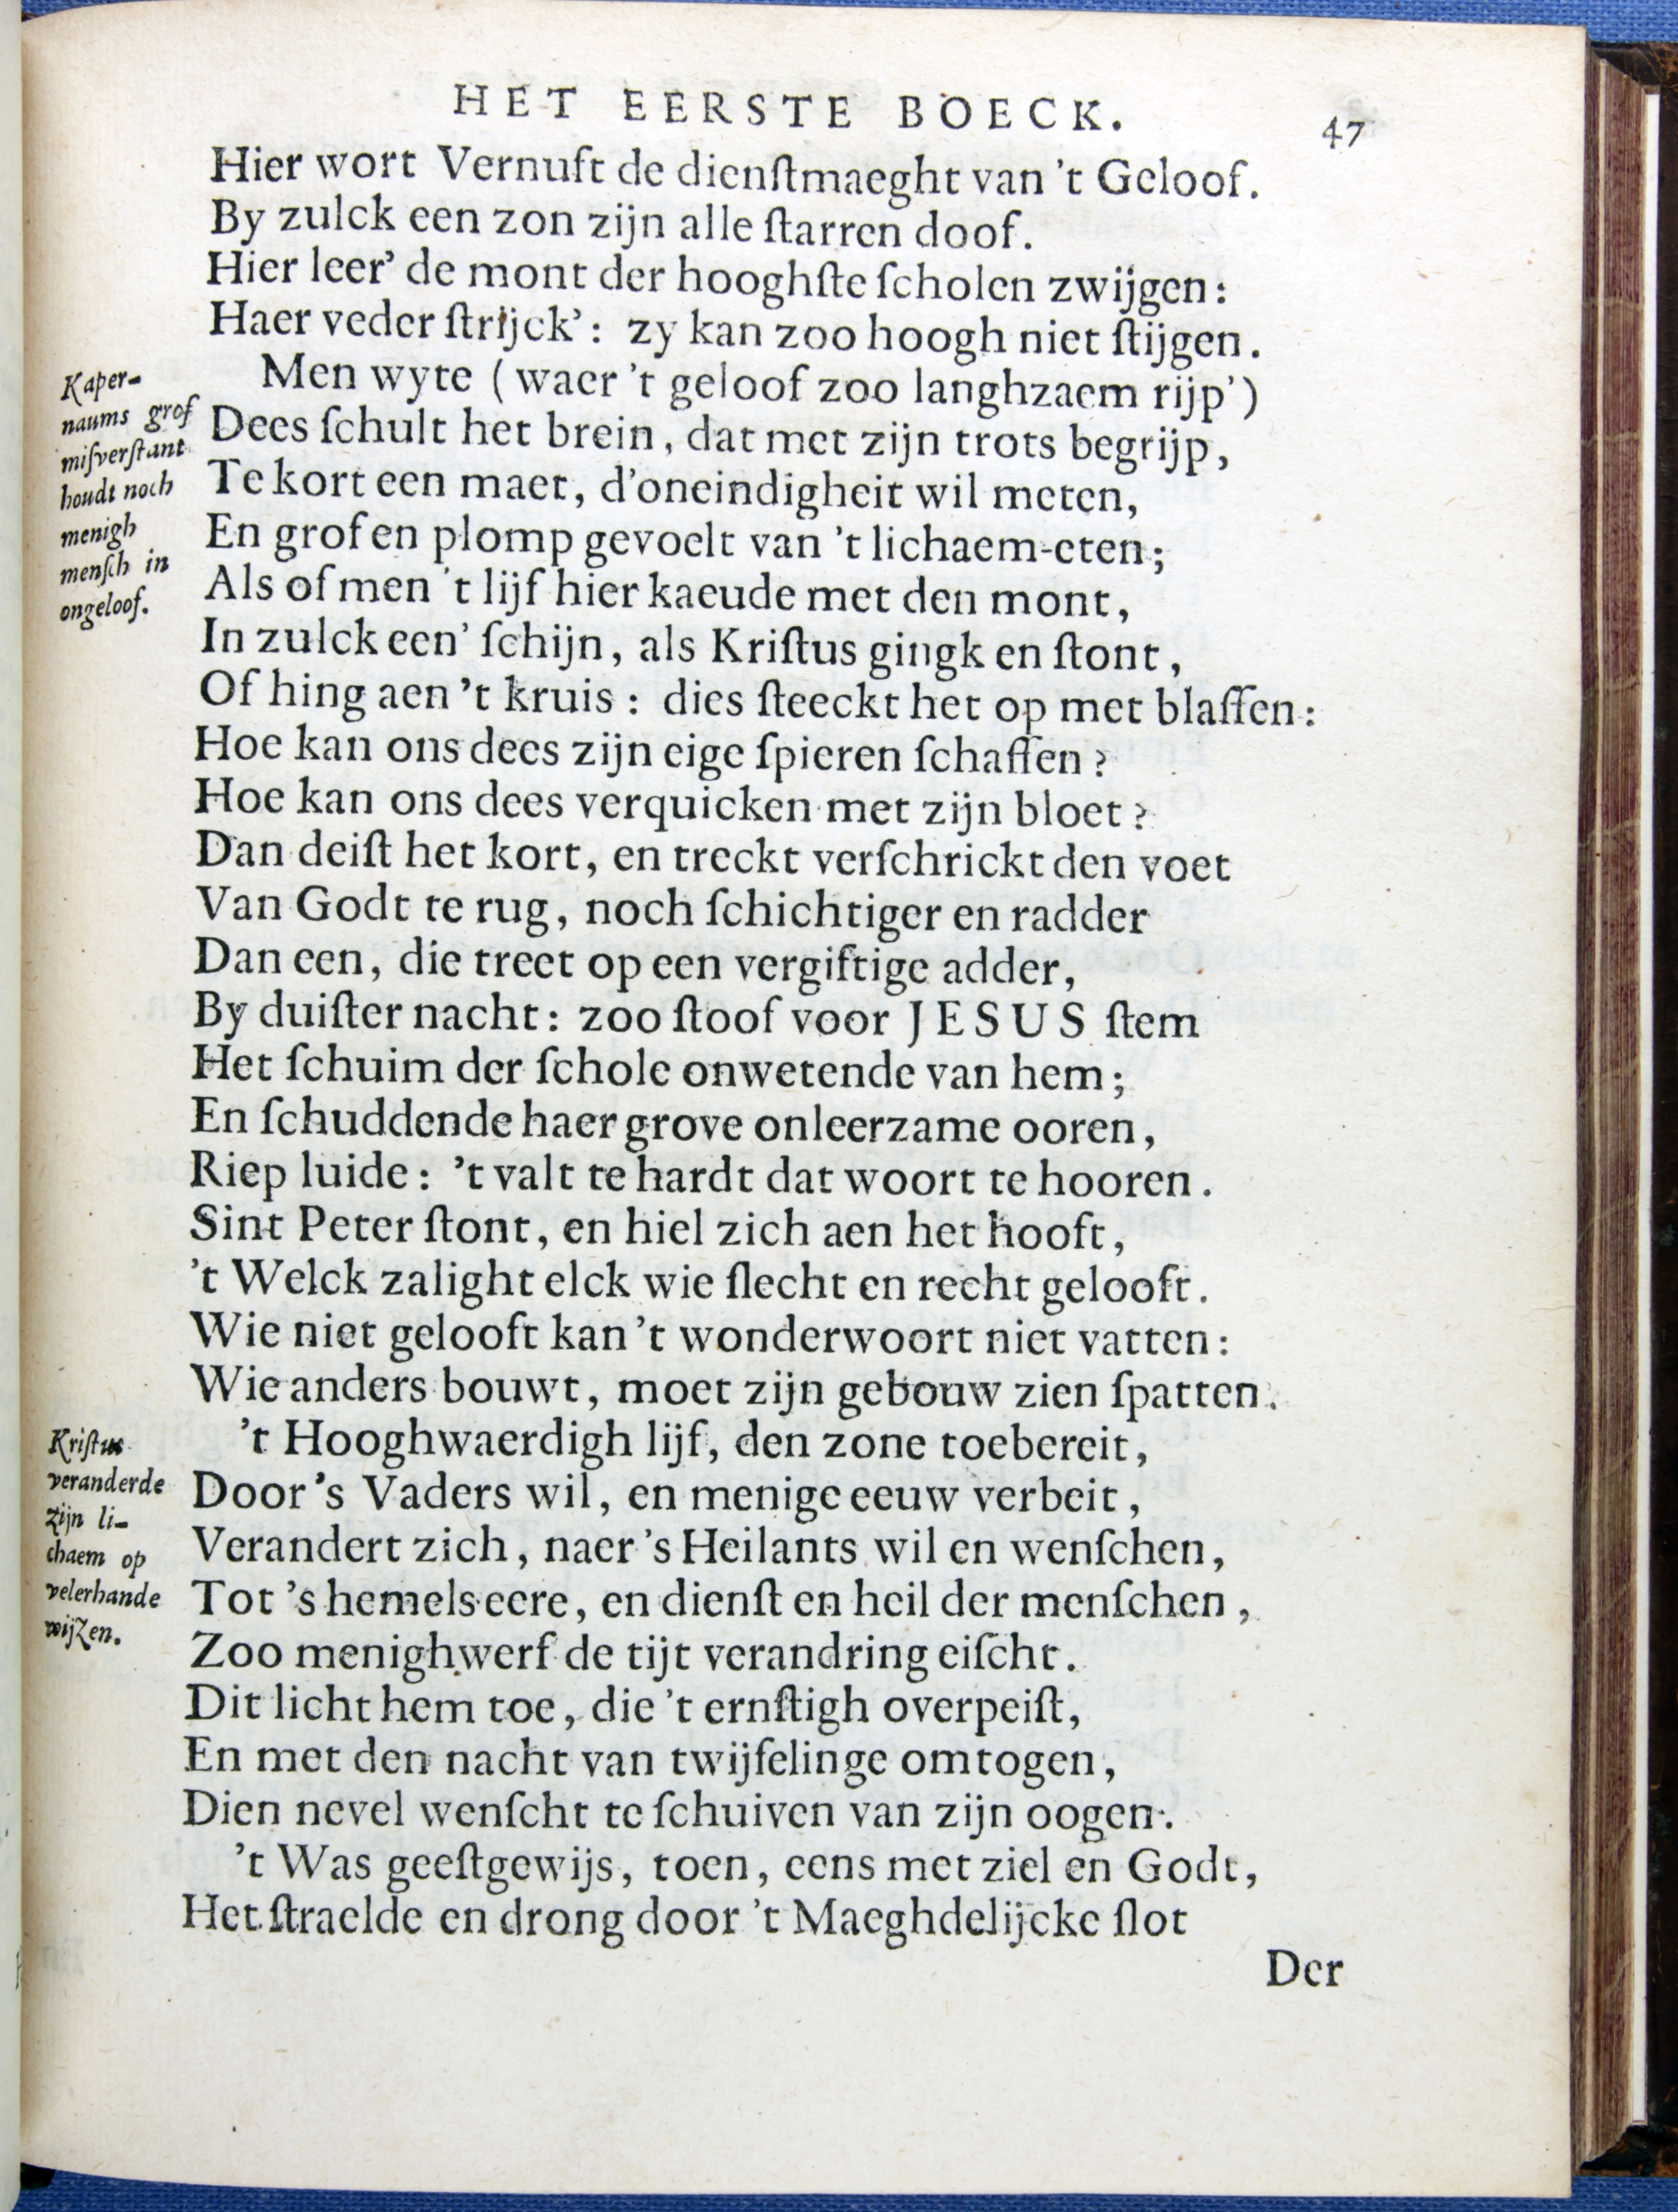 HET EERSTE BOECK.
47
Hier wort Vernuft de dienſtmaeght van 't Geloof.
By zulck een zon zijn alle ſtarren doof.
Hier leer' de mont der hooghſte ſcholen zwijgen:
Haer veder ſtrijck': zy kan zoo hoogh niet ſtijgen.
Kaper-
naums grof
miſverſtant
houdt noch
menigh
menſch in
ongeloof.
Men wyte (waer 't geloof zoo langhzaem rijp')
Dees ſchult het brein, dat met zijn trots begrijp,
Te kort een maet, d'oneindigheit wil meten,
En grof en plomp gevoelt van 't lichaem-eten;
Als of men 't lijf hier kaeude met den mont,
In zulck een' ſchijn, als Kriſtus gingk en ſtont,
Of hing aen 't kruis: dies ſteeckt het op met blaffen:
Hoe kan ons dees zijn eige ſpieren ſchaffen?
Hoe kan ons dees verquicken met zijn bloet?
Dan deiſt het kort, en treckt verſchrickt den voet
Van Godt te rug, noch ſchichtiger en radder
Dan een, die treet op een vergiftige adder,
By duiſter nacht: zoo ſtoof voor JESUS ſtem
Het ſchuim der ſchole onwetende van hem;
En ſchuddende haer grove onleerzame ooren,
Riep luide: 't valt te hardt dat woort te hooren.
Sint Peter ſtont, en hiel zich aen het hooft,
't Welck zalight elck wie ſlecht en recht gelooft.
Wie niet gelooft kan 't wonderwoort niet vatten:
Wie anders bouwt, moet zijn gebouw zien ſpatten.
Kriſtus
veranderde
zijn li-
chaem op
velerhande
wijzen.
't Hooghwaerdigh lijf, den zone toebereit,
Door 's Vaders wil, en menige eeuw verbeit,
Verandert zich, naer 's Heilants wil en wenſchen,
Tot 's hemels eere, en dienſt en heil der menſchen,
Zoo menighwerf de tijt verandring eiſcht.
Dit licht hem toe, die 't ernſtigh overpeiſt,
En met den nacht van twijfelinge omtogen,
Dien nevel wenſcht te ſchuiven van zijn oogen.
't Was geeſtgewijs, toen, eens met ziel en Godt,
Het ſtraelde en drong door 't Maeghdelijcke ſlot
Der